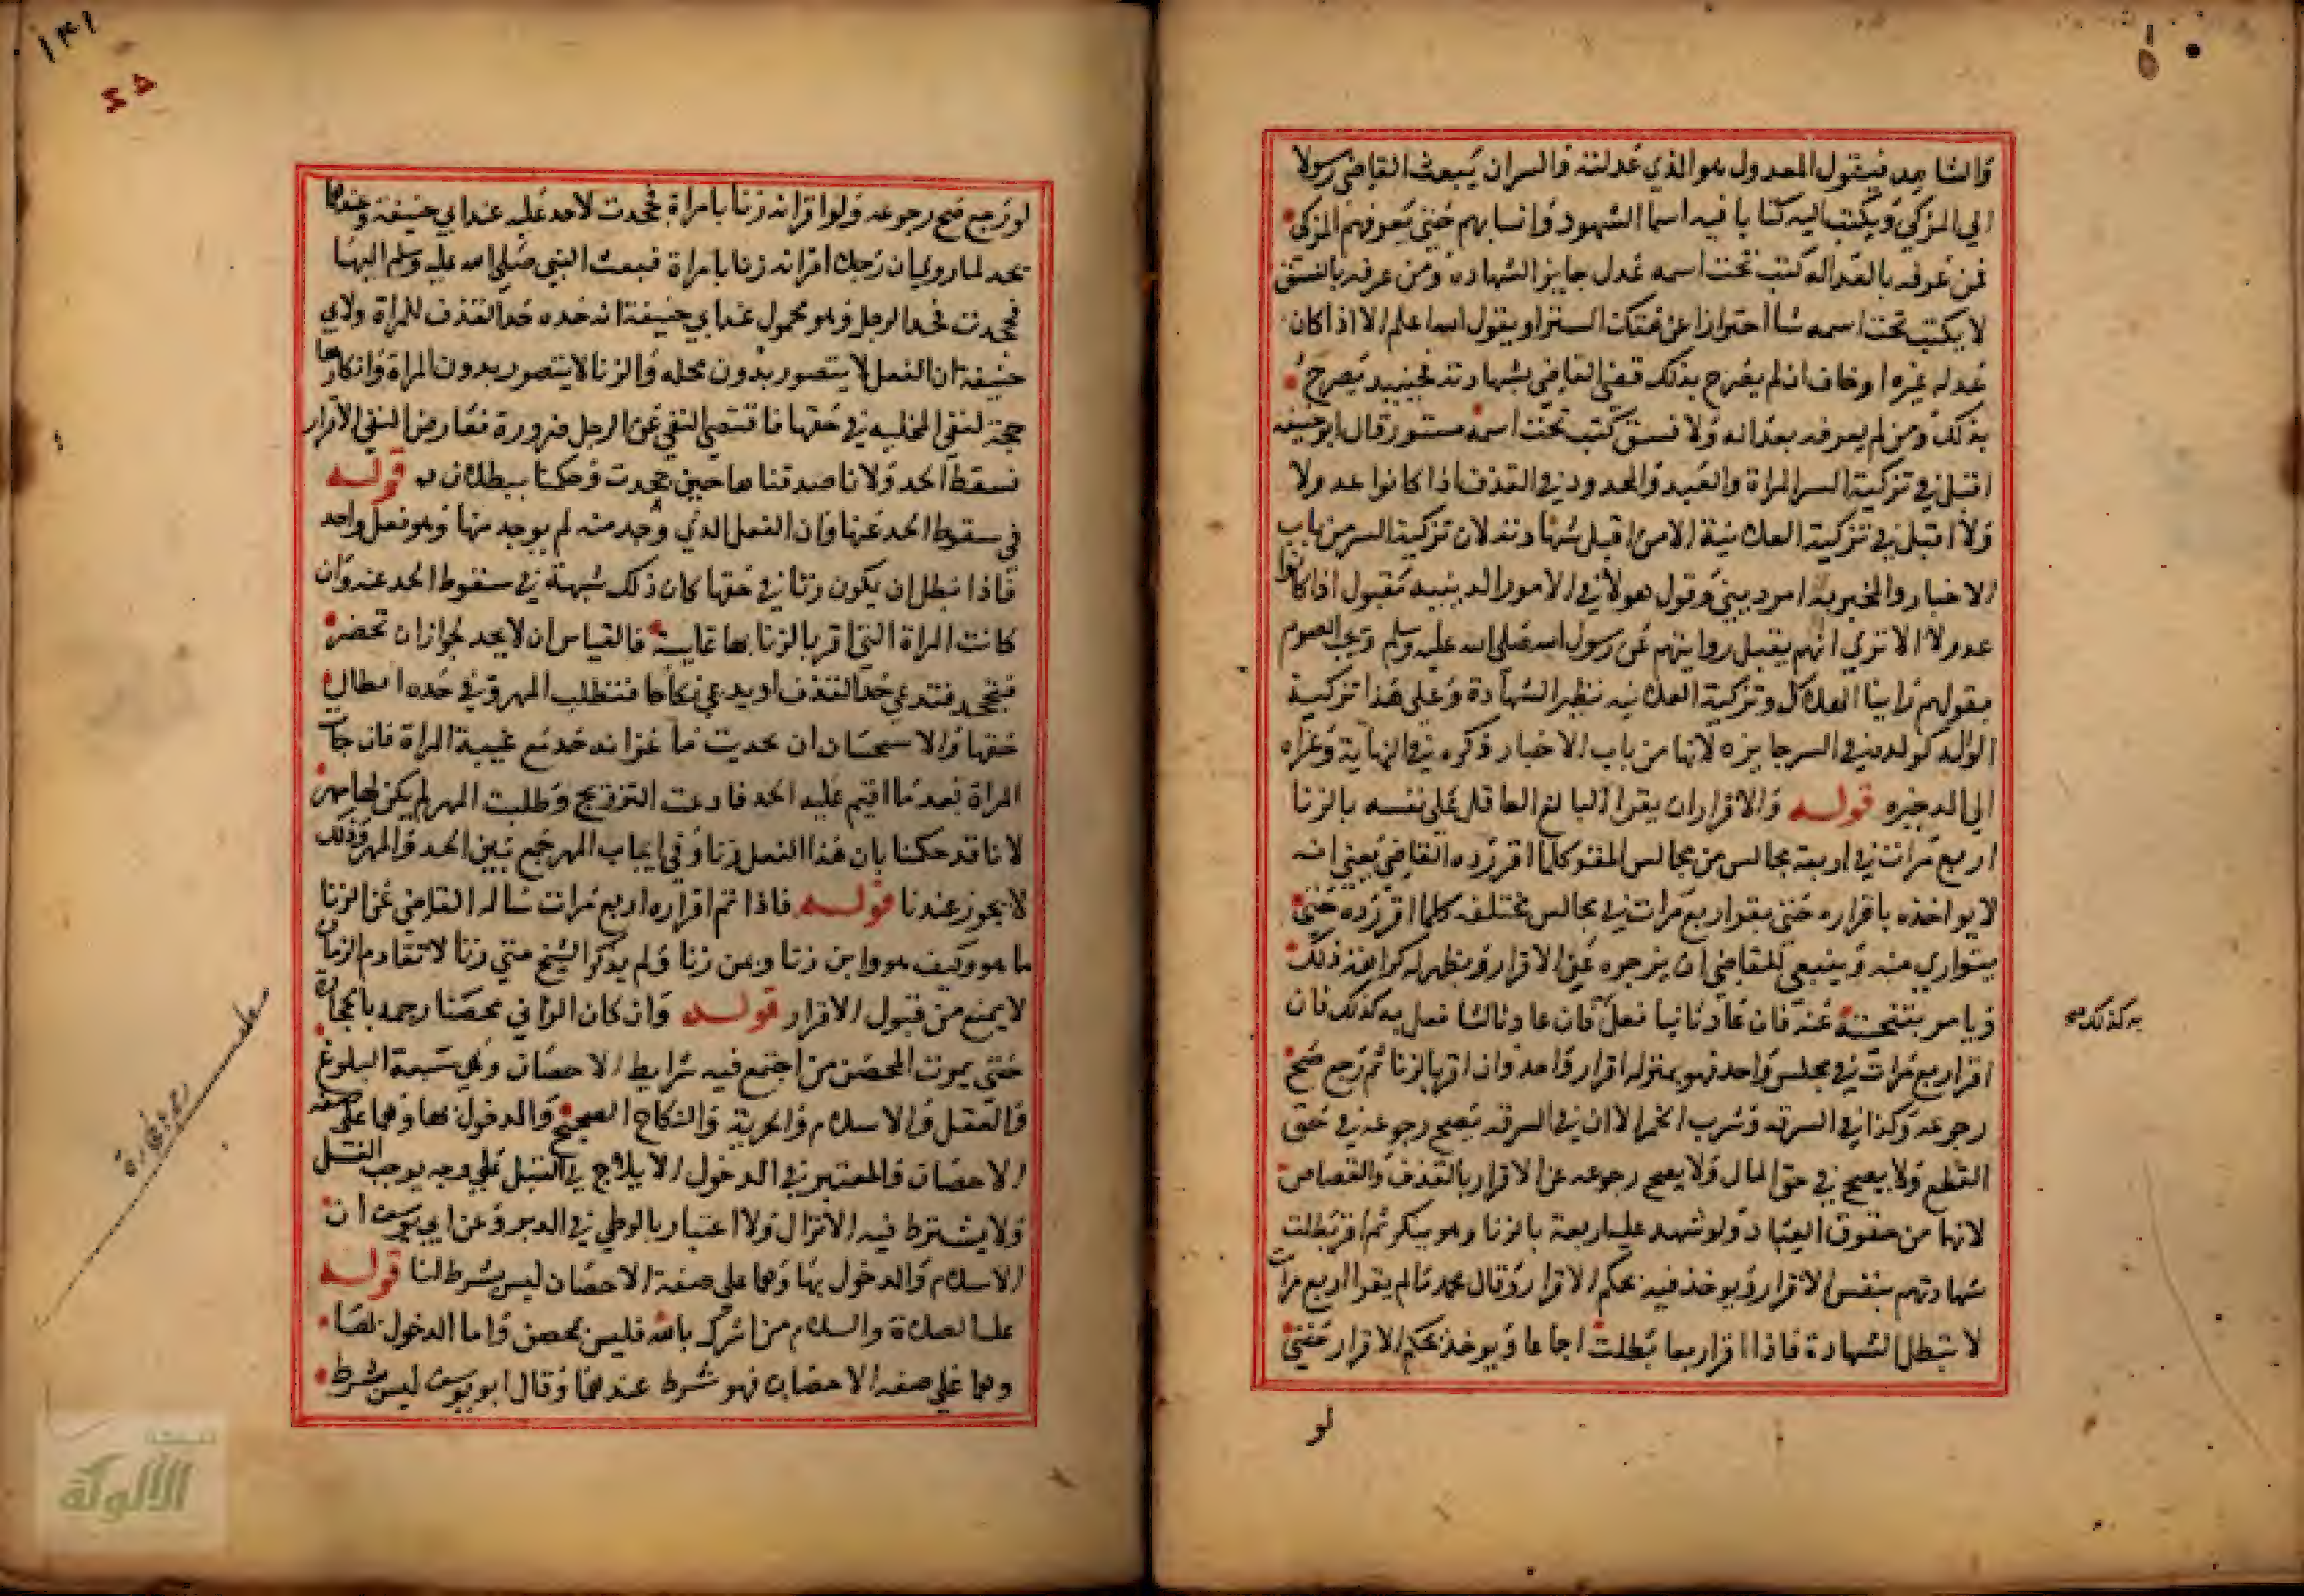 والشاهد فيقول المعدول هو الذي عدلته والسر ان يبعث القاضي رسولا
الي المزكي ويكتب اليه كتابا فيه اسما الشهود وانسابهم حتي يعرفهم المزكي
فمن عرفه بالعداله كتب تحت اسمه عدل جايز الشهاده ومن عرفه بالفسق
لا يكتب تحت اسمه شا احترازا عن هتك الستر او يقول الله اعلم الا اذا كان
عدله غيره او خاف ان لم يصرح بذلك قضي القاضي بشهادته فحينيذ يصرح
بذلك ومن لم يعرفه بعداله ولا فسق كتب تحت اسمه مستور قال ابو حنيفه
اقبل في تزكية السر المراة والعبد والمحدود في القذف اذا كانوا عدولا
ولا اقبل في تزكية العلانية الا من اقبل شهادته لان تزكية السر من باب
الاخبار والمخبر به امر ديني وقول هولا في الامور الدينيه مقبول اذا كانوا
عدولا الا تري انهم يقبل روايتهم عن رسول الله صلي الله عليه وسلم ويجب الصوم
بقولهم راينا الهلال وتزكية العلانيه نظير الشهادة وعلي هذا تزكية
الوالد لولده في السر جايزه لانها من باب الاخبار ذكره في النهاية وعزاه
الي الدخيره قوله والاقرار ان يقر البالغ العاقل علي نفسه بالزنا
اربع مرات في اربعة مجالس من مجالس المقر كلما اقر رده القاضي يعني انه
لا يواخذه باقراره حتي يقر اربع مرات في مجالس مختلفه كلما اقر رده حتي
يتواري منه وينبغي للقاضي ان يزجره عن الاقرار ويظهر له كراهة ذلك
ويامر بتنحيته عنه فان عاد ثانيا فعل فان عاد ثالثا فعل به كذلك فان
به كذلك صح
اقر اربع مرات في مجلس واحد فهو بمنزله اقرار واحد وان اقر بالزنا ثم رجع صح
رجوعه وكذا في السرقه وشرب الخمر الا ان في السرقه يصح رجوعه في حق
القطع ولا يصح في حق المال ولا يصح رجوعه عن الاقرار بالقذف والقصاص
لانها من حقوق العباد ولو شهد عليه اربعة بالزنا وهو ينكر ثم اقر بطلت
شهادتهم بنفس الاقرار ويوخذ فيه بحكم الاقرار وقال محمد مالم يقر اربع مرات
لا تبطل الشهادة فاذا اقر اربعا بطلت اجماعا ويوخذ بحكم الاقرار حتي
لو
١٣١
لو رجع صح رجوعه ولو اقر انه زنا بامراة فجحدت لا حد عليه عند ابي حنيفة وعندهما
يحد لما روي ان رجلا اقر انه زنا بامراة فبعث النبي صلي الله عليه وسلم اليها
فجحدت فحد الرجل وهو محمول عند ابي حنيفة انه حده حد القذف للمراة ولابي
حنيفة ان الفعل لا يتصور بدون محله والزنا لا يتصور بدون المراة وانكارها
حجة لنفي في حقها فاقتضي النفي عن الرجل ضرورة فعارض النفي الاقرار
فسقط الحد ولانا صدقناها حين جحدت وحكمنا ببطلان قوله
في سقوط الحد عنها فان الفعل الذي وجد منه لم يوجد منها وهو فعل واحد
فاذا بطل ان يكون زنا في حقها كان ذلك شبهة في سقوط الحد عنه وان
كانت المراة التي اقر بالزنا بها غايبة فالقياس ان لا يحد لجواز ان تحضر
فتجحد فتدعي حد القذف او يدعي نكاحا فتطلب المهر وفي حده ابطال
حقها والاستحسان ان يحد لحديث ماعز انه حد مع غيبة المراة فان جات
المراة بعد ما اقيم عليه الحد فادعت التزويج وطلبت المهر لم يكن لها مهر
لانا قد حكمنا بان هذا الفعل زنا وفي ايجاب المهر جمع بين الحد والمهر وذلك
لا يجوز عندنا قوله فاذا تم اقراره اربع مرات ساله القاضي عن الزنا
ما هو وكيف هو واين زنا وبمن زنا ولم يذكر الشيخ متي زنا لا تقادم الزمان
لا يمنع من قبول الاقرار قوله وان كان الزاني محصنا رجمه بالحجارة
حتي يموت المحصن من اجتمع فيه شرايط الاحصان وهي سبعة البلوغ
والعقل والاسلام والحرية والنكاح الصحيح والدخول بها وهما علي صفة
الاحصان والمعتبر في الدخول الايلاج في القبل علي وجه يوجب الغسل
ولا يشترط فيه الانزال ولا اعتبار بالوطي في الدبر وعن ابي يوسف ان
الاسلام والدخول بها وهما علي صفة الاحصان ليس بشرط لنا قوله
عليه الصلاة والسلام من اشرك بالله فليس بمحصن واما الدخول بها
وهما علي صفه الاحصان فهو شرط عندهما وقال ابو يوسف ليس بشرط
الألوكة